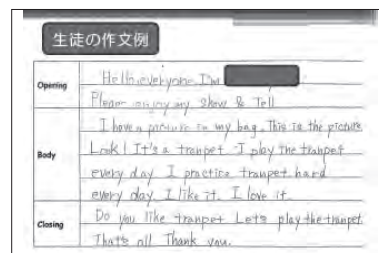 生徒の作文例
Opening
Hello, everyone. I'm
Please enjoy my Show & Tell
Body
I have a picture in my bag. This is the picture
Look! It's a tranpet. I play the tranpet
every day. I practice tranpet hard
every day. I like it. I love it.
Closing
Do you like tranpet Let's play the tranpet.
That's all Thank you.